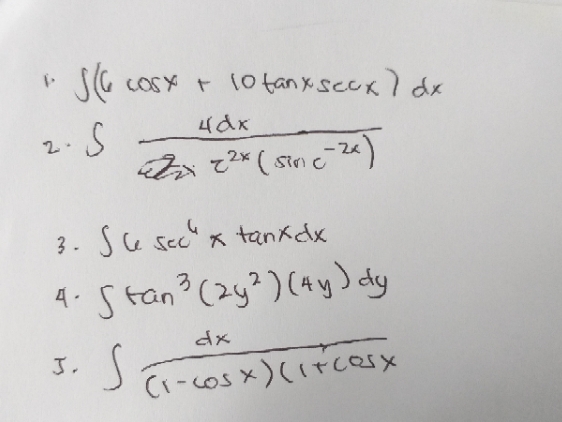 1. ∫(6 cosx + 10 tanx secx) dx
2. ∫ 4dx / e^2x (sin e^-2x)
3. ∫ 6 sec^4 x tanx dx
4. ∫ tan^3 (2y^2)(4y) dy
5. ∫ dx / (1-cosx)(1+cosx